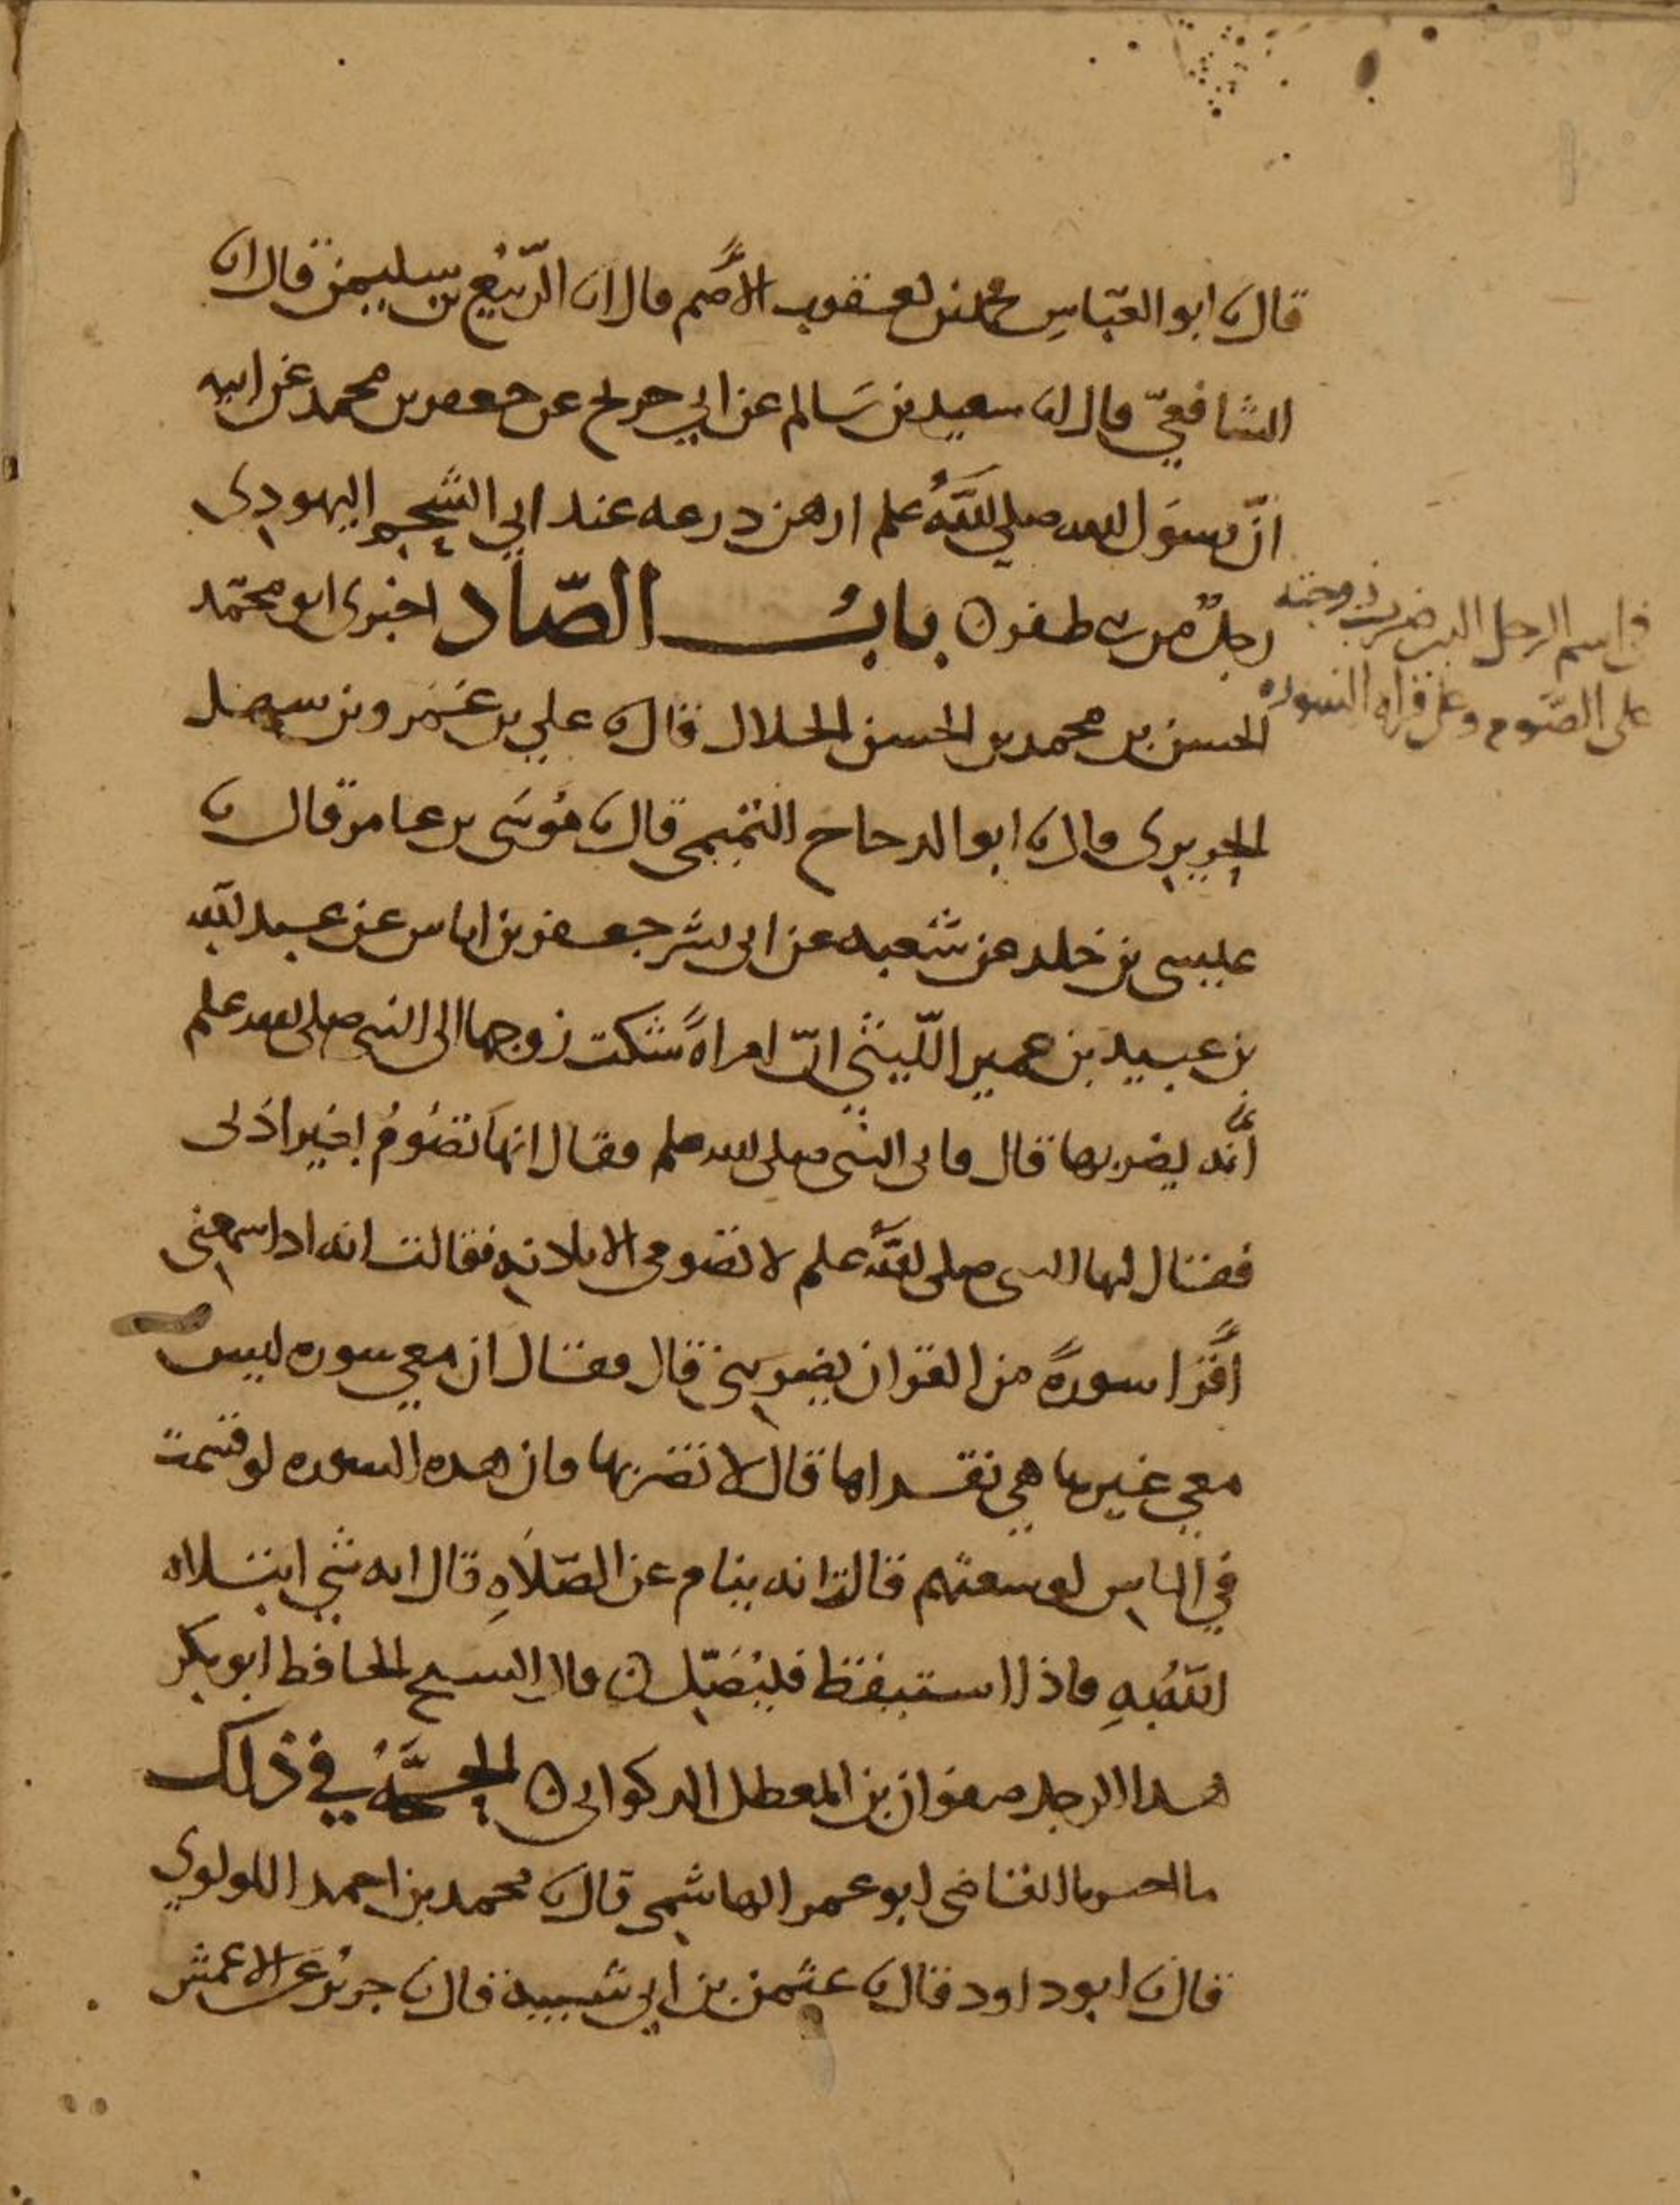 قال نا ابو العبّاس محمد بن يعقوب الأصم قال انا الرّبيع بن سليمن قال انا
الشافعيّ قال انا سعيد بن سَالم عن ابي جريج عن جعفر بن محمد عن ابيه
انّ رسول الله صلى اللهُ علم ارهن درعه عند ابي الشحم اليهودي
رجلٌ من بني ظفر ن بابُ الصّاد اخبرني ابو محمّد
الحسن بن محمد بن الحسن الخلال قال نا علي بن عَمْرو بن سهل
الحريري قال نا ابو الدحداح التميمي قال نا مُوسَى بن عامر قال نا
عيسى بن خلد عن شعبه عن ابي بشر جعفر بن اياس عن عبد الله
بن عبيد بن عمير اللّيثي انّ امراةً شكت زوجها الى النبي صلى الله علم
أنّه يضربها قال فاتى النبي صلى الله علم فقال انها تصُومُ بغير اذنى
فقال لها النبي صلى اللهُ علم لا تصومي الا باذنه فقالت انه اذا سمعني
أقرا سورةً من القران يضربني قال فقال ان معي سوره ليس
معي غيرها هي تقراها قال لا تضربها فان هذه السوره لو قسمت
في الناس لوسعتهم قالت انه ينام عن الصّلاهِ قال انه شي ابتلاه
اللهُ بهِ فاذا استيقظ فليُصَلّ ن قال الشيخ الحافظ ابو بكر
هذا الرجل صفوان بن المعطل الذكواني ن الحجّةُ في ذلك
ما اخبرنا القاضي ابو عمر الهاشمي قال نا محمد بن احمد اللولوي
قال نا ابو داود قال نا عثمن بن ابي شيبه قال نا جريرٌ عن الاعمش
في اسم الرجل الذي ضرب زوجته
على الصّوم وعلى قراه السوره